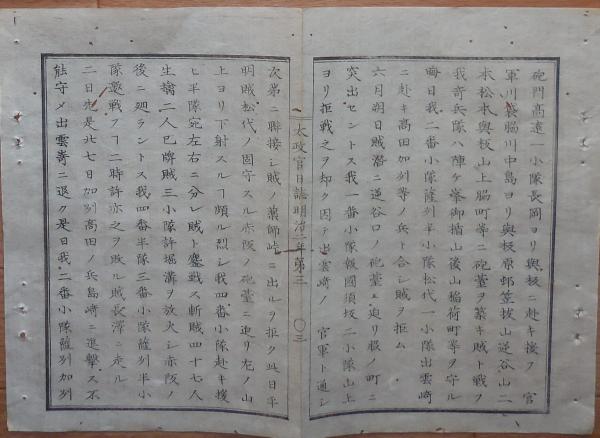 砲門高遠一小隊長岡ヨリ與板ニ赴キ援フ 官
軍川袋脇川中島ヨリ與板原邨笠抜山逆谷山二
本松本與板山上脇町等ニ砲䑓ヲ築キ賊ト戦フ
我竒兵隊ハ陣ケ峯御楯山後山稲荷町等ヲ守ル
晦日我二番小隊薩州半小隊松代一小隊出雲崎
ニ赴キ高田加州等ノ兵ト合シ賊ヲ拒ム
六月朔日賊潜ニ逆谷口ノ砲䑓ニ迫リ根ノ町ニ
突出セントス我一番小隊飯國須坂二小隊山上
ヨリ拒戦之ヲ却ク因テ出雲崎ノ 官軍ト通シ
太政官日誌明治二年第三 〇三
次第ニ聯接シ賊ノ藥師峠ニ出ルヲ拒ク此日平
明賊松代ノ固守スル赤坂ノ砲䑓ニ迫リ左ノ山
上ヨリ下射スルヿ頗ル烈シ我四番小隊赴キ援
ヒ半隊宛左右ニ分レ賊ト鏖戦ス斬賊四十七人
生擒二人已ニ賊三小隊許堀溝ヲ放火シ赤坂ノ
後ニ廻ラントス我四番半隊三番小隊薩州半小
隊激戦スヿ二時許亦之ヲ敗ル賊長澤ニ走ル
二日先是廿七日加州高田ノ兵島崎ニ進撃ス不
能守メ出雲嵜ニ退ク是日我二番小隊薩州加州